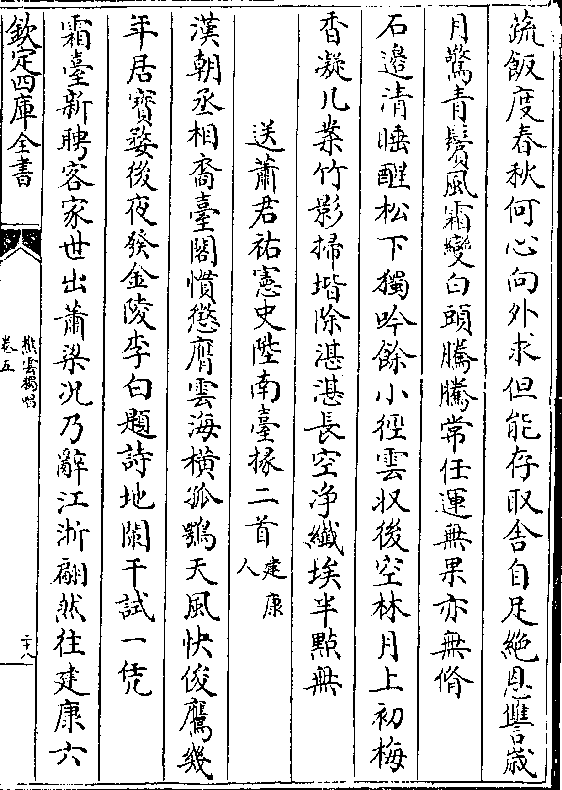 蔬飯度春秋何心向外求但能存取舎自足絶恩讐歳
月驚青鬢風霜變白頭騰騰常任運無果亦無脩
石邉清睡醒松下獨吟餘小徑雲収後空林月上初梅
香凝几案竹影掃堦除湛湛長空净纎埃半點無
送蕭君祐憲史陞南臺掾二首建康人
漢朝丞相裔臺閣慣懲膺雲海横孤鶚天風快俊鷹幾
年居寳婺後夜發金陵李白題詩地闌干試一凭
霜臺新聘客家世出蕭梁况乃辭江浙翩然往建康六
欽定四庫全書
樵雲獨唱
卷五
二十八